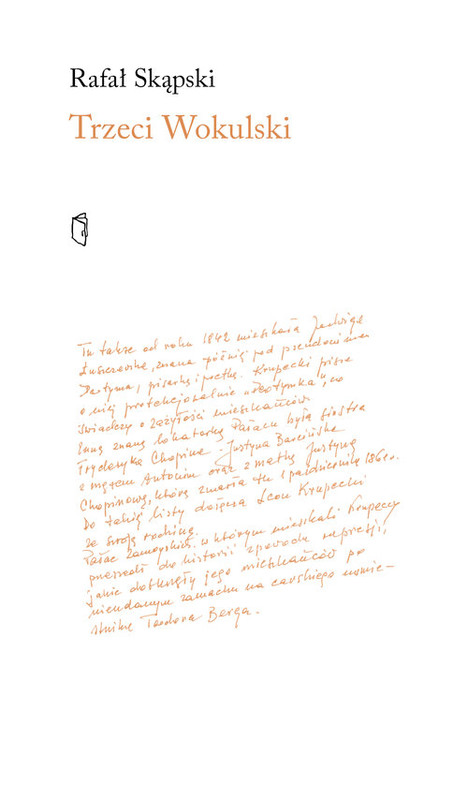 Rafał Skąpski
Trzeci Wokulski
Tu także od roku 1842 mieszkała Jadwiga
Łuszczewska, znana później pod pseudonimem
Deotyma, pisarka i poetka. Krupecki pisze
o niej protekcjonalnie „Deotymka”, co
świadczy o zażyłości mieszkańców
Inną znaną lokatorką Pałacu była siostra
Fryderyka Chopina - Justyna Barcińska
z mężem Antonim oraz z matką Justyną
Chopinową, która zmarła tu 1 października 1861 r.
Do takiej listy dołącza Leon Krupecki
ze swoją rodziną.
Pałac Zamoyskich w którym mieszkali Krupeccy
przeszedł do historii z powodu represji,
jakie dotknęły jego mieszkańców po
nieudanym zamachu na carskiego namie-
stnika Teodora Berga.